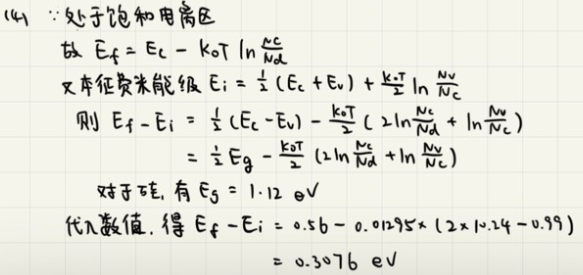 (4) ∵处于饱和电离区
故 Ef = Ec - K₀T ln Nc/Nd
又本征费米能级 Ei = 1/2 (Ec + Ev) + K₀T/2 ln Nv/Nc
则 Ef - Ei = 1/2 (Ec - Ev) - K₀T/2 ( 2ln Nc/Nd + ln Nv/Nc )
= 1/2 Eg - K₀T/2 (2ln Nc/Nd + ln Nv/Nc)
对于硅, 有 Eg = 1.12 eV
代入数值, 得 Ef - Ei = 0.56 - 0.01295 × (2 × 10.24 - 0.99)
= 0.3076 eV